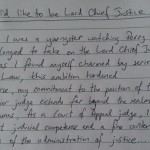 I'd like to be Lord Chief Justice
I was a youngster watching Perry
longed to take on the Lord Chief
as I found myself charmed by
Law, this ambition hardened
my commitment to the position of
judge extends far beyond the
As a Court of Appeal judge, I
judicial competence and a fine
of the administration of justice